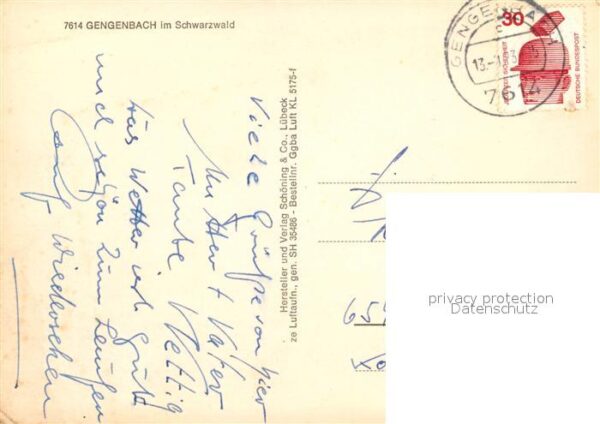 7614 GENGENBACH im Schwarzwald
GENGENBACH
13.
7614
30
JEDERZEIT SICHERHEIT
DEUTSCHE BUNDESPOST
Viele Grüße von hier
Mutter + Vater
Tante Hettig
das Wetter ist gut
und schön zum Laufen
auf Wiedersehen
Hersteller und Verlag Schöning & Co., Lübeck
ze Luftaufn., gen. SH 35486 - Bestellnr. Ggba Luft KL 5175-f
privacy protection
Datenschutz